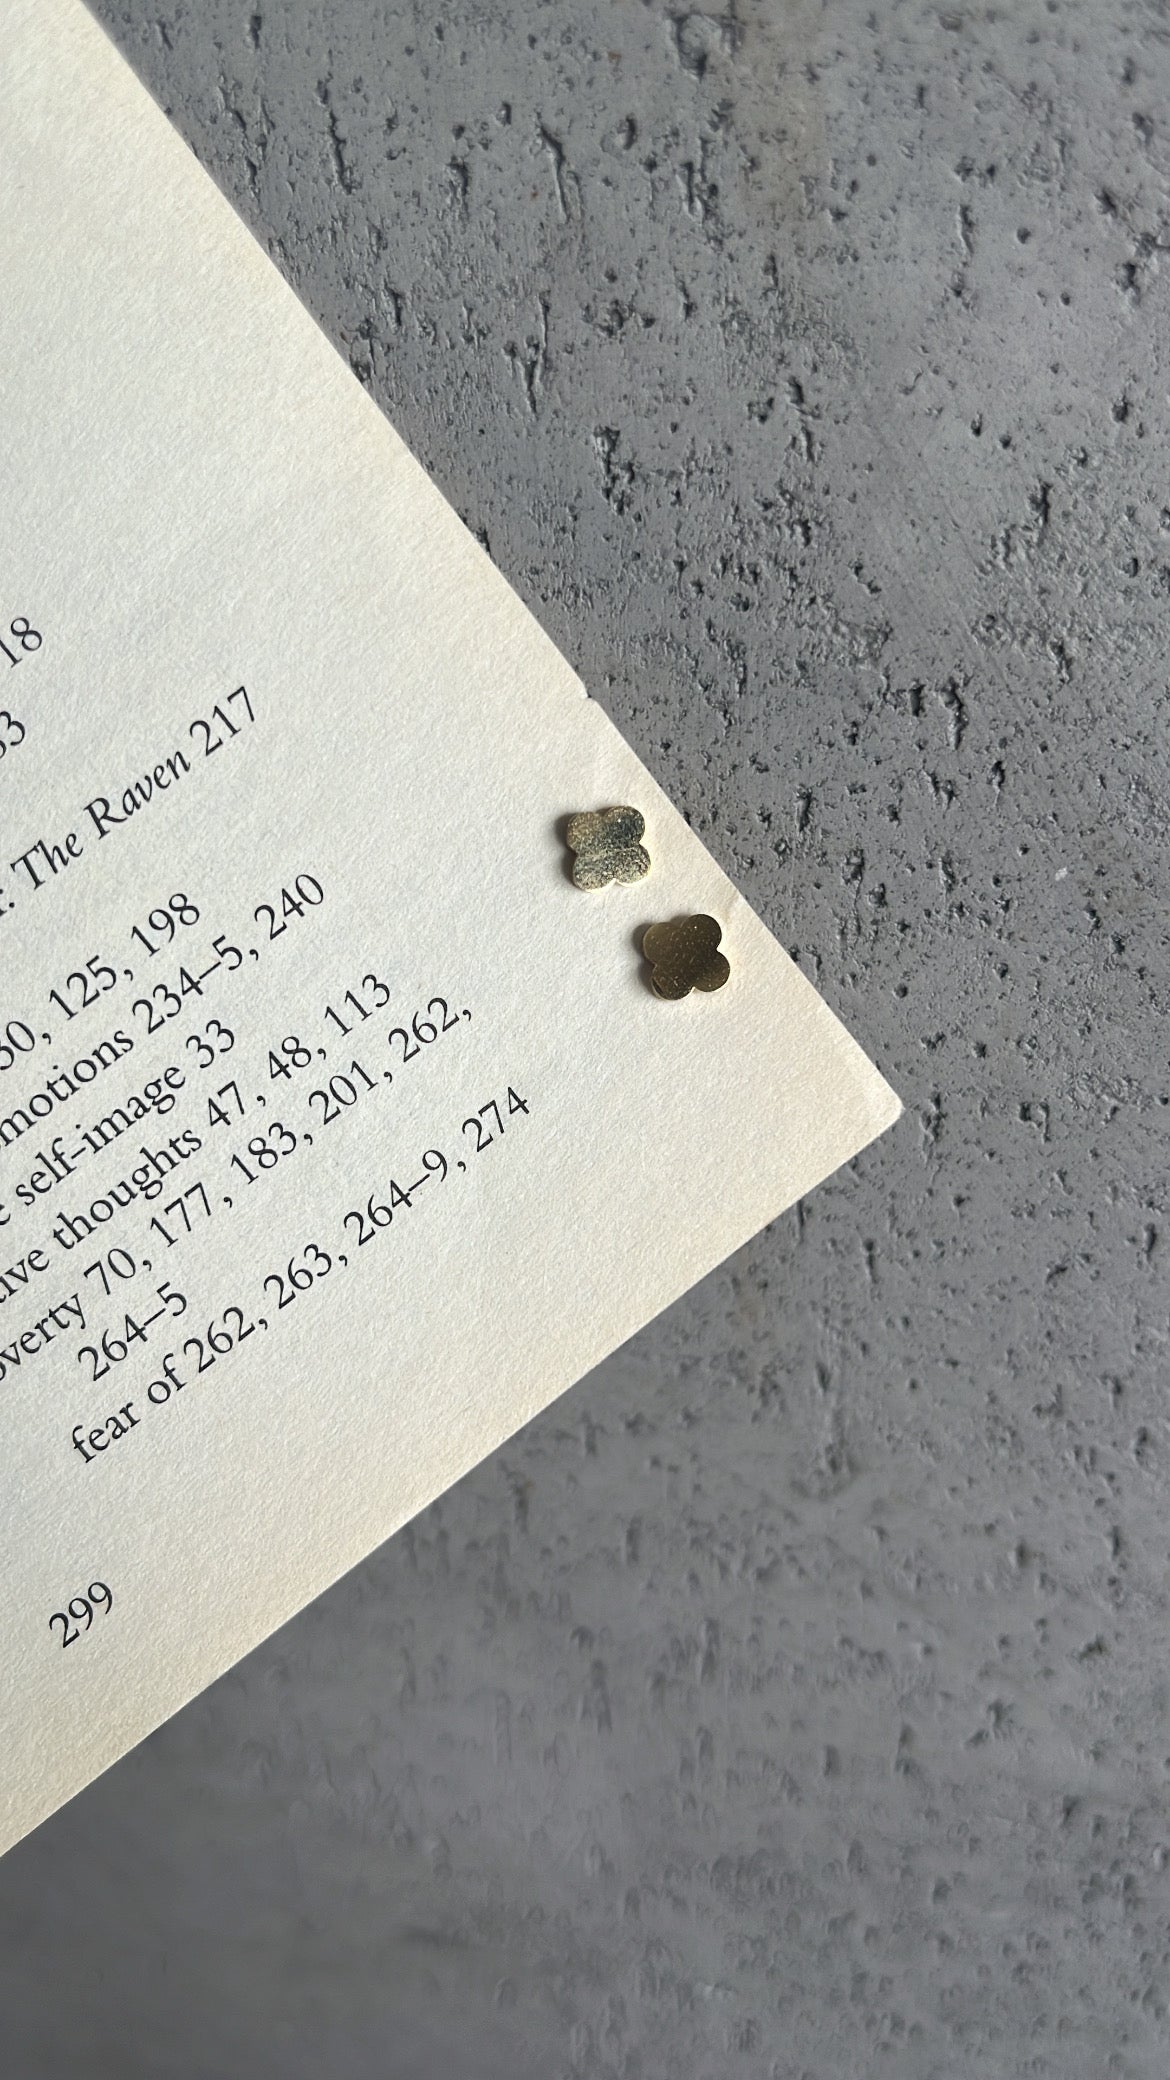 18
3
: The Raven 217
30, 125, 198
motions 234–5, 240
self-image 33
tive thoughts 47, 48, 113
overty 70, 177, 183, 201, 262,
264–5
fear of 262, 263, 264–9, 274
299